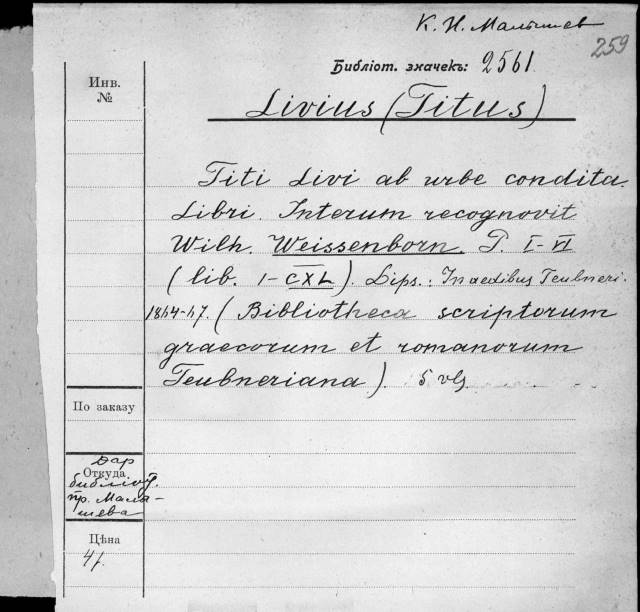 К. И. Малышев
259
Библіот. значекъ: 2561
Livius (Titus)
Инв.
№
Titi Livi ab urbe condita
Libri. Interum recognovit
Wilh. Weissenborn. P. I-VI
(lib. 1-CXL). Lips.: In aedibus Teubneri.
1844-47. (Bibliotheca scriptorum
graecorum et romanorum
Teubneriana). 5 vls
По заказу
Откуда
Дар
библіот.
пр. Малы-
шева
Цѣна
4р.